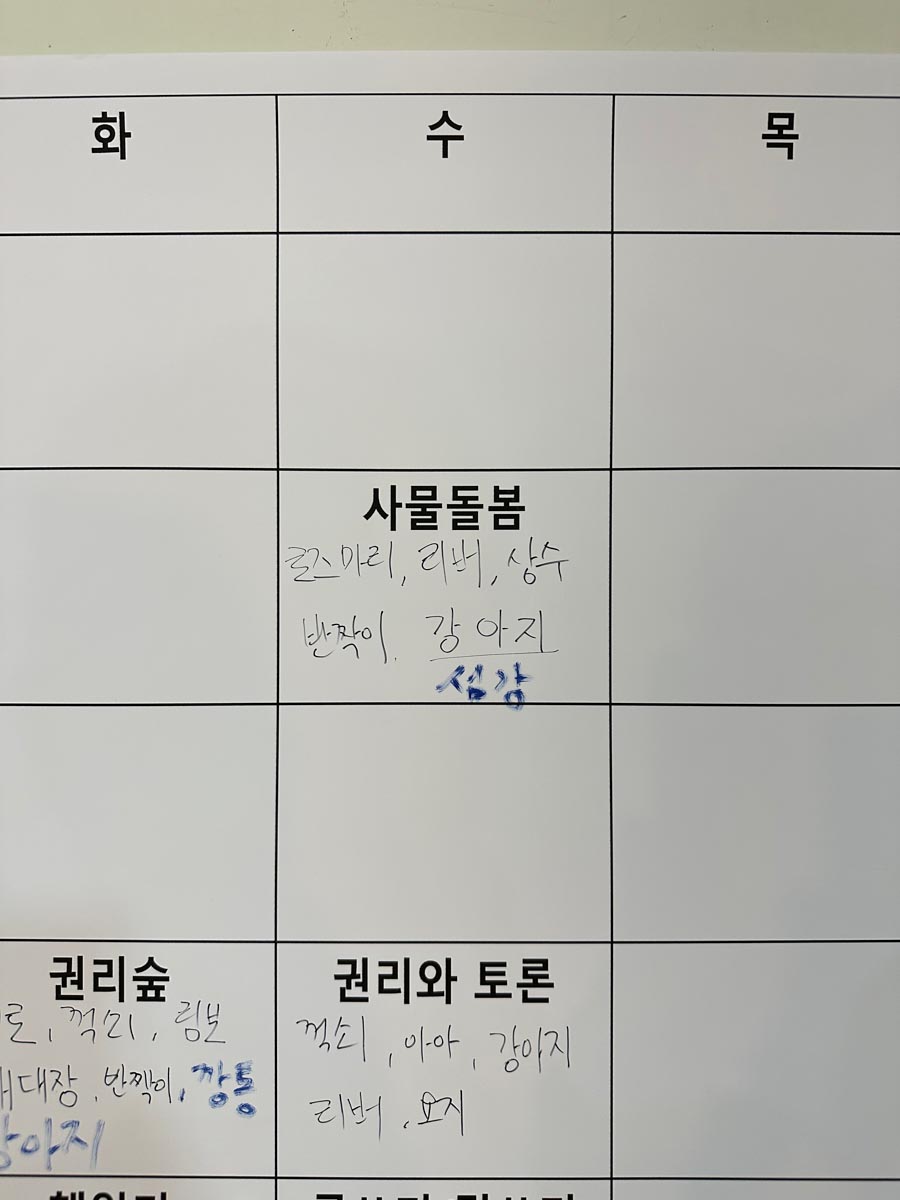 화
수
목
사물돌봄
로즈마리, 리버, 상수
반짝이, 강아지
섬강
권리숲
꺽쇠, 림보
대장, 반짝이, 깡통
강아지
권리와 토론
꺽쇠, 아아, 강아지
리버, 요지